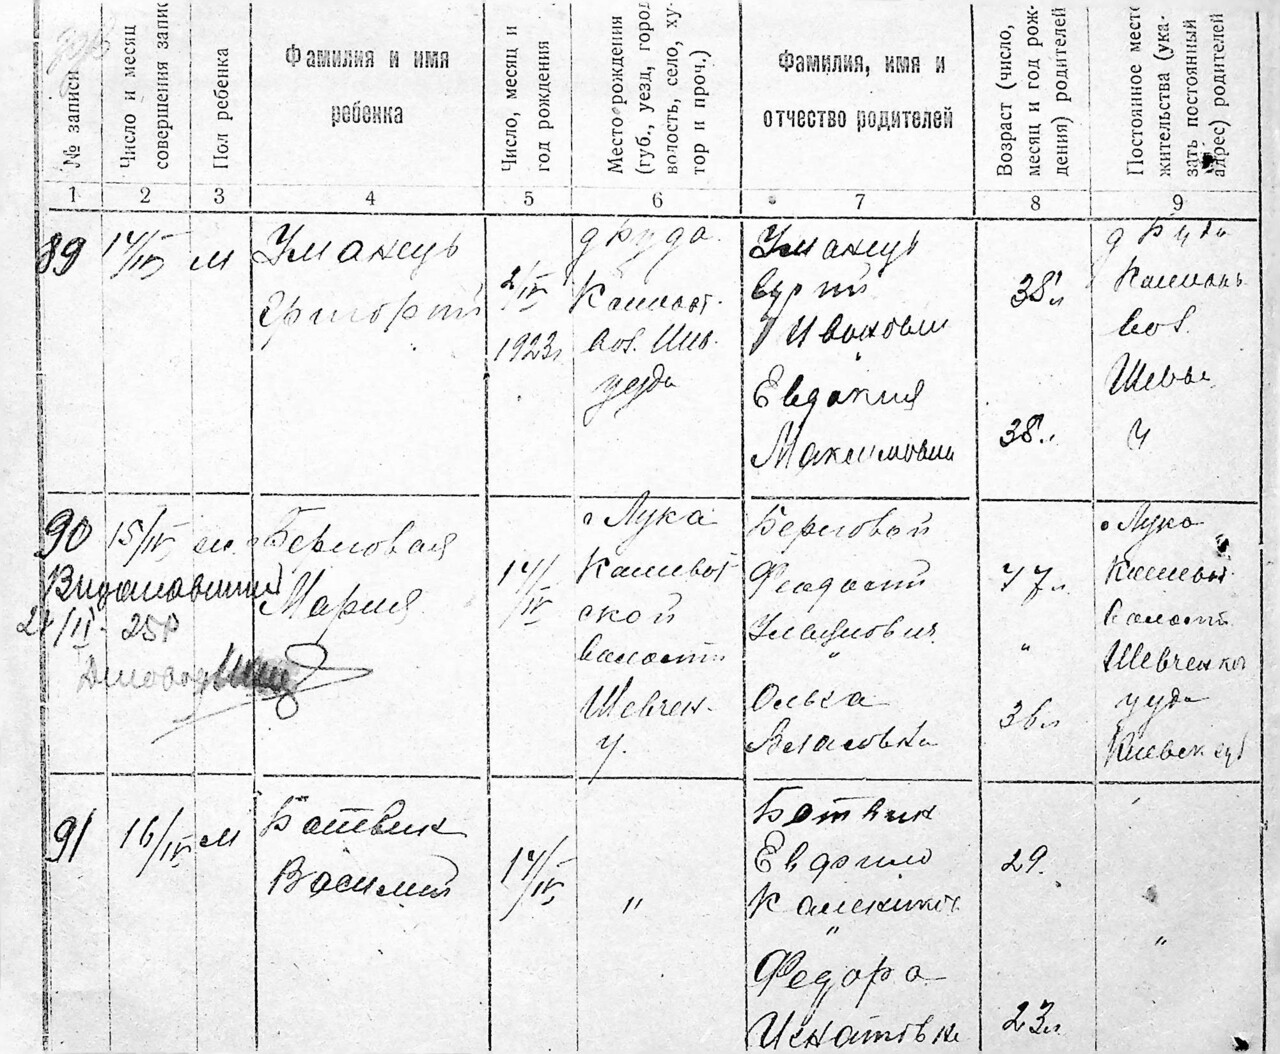 № записи
Число и месяц
совершения запис
Пол ребенка
Фамилия и имя
ребенка
Число, месяц и
год рождения
Место рождения
(губ., уезд, город
волость, село, ху-
тор и проч.)
Фамилия, имя и
отчество родителей
Возраст (число,
месяц и год рож-
дения) родителей
Постоянное мест
жительства (ука-
зать постоянный
адрес) родителей
1 2 3 4 5 6 7 8 9
89
14/IV
м
Уманець
Григорий
2/IV
1923г
д Руда
вол.
уезда
Уманець
Иванович
Евдокия
Максимовна
38 л
38 л
д Руда
вол.
Шевч
у
90
15/IV
Береговая
Мария
24/II 25р
Діловод
14/IV
с Лука
Каневот
ской
волости
Шевчен.
у.
Береговой
Феодосий
"
Ольга
Власовна
47 л
"
36 л
с Лука
волости
Шевченког
уезда
Киевск губ
91
16/IV
м
Ботвин
Василий
14/IV
"
Ботвин
Евфим
"
Федора
Игнатовна
29.
23 л
"